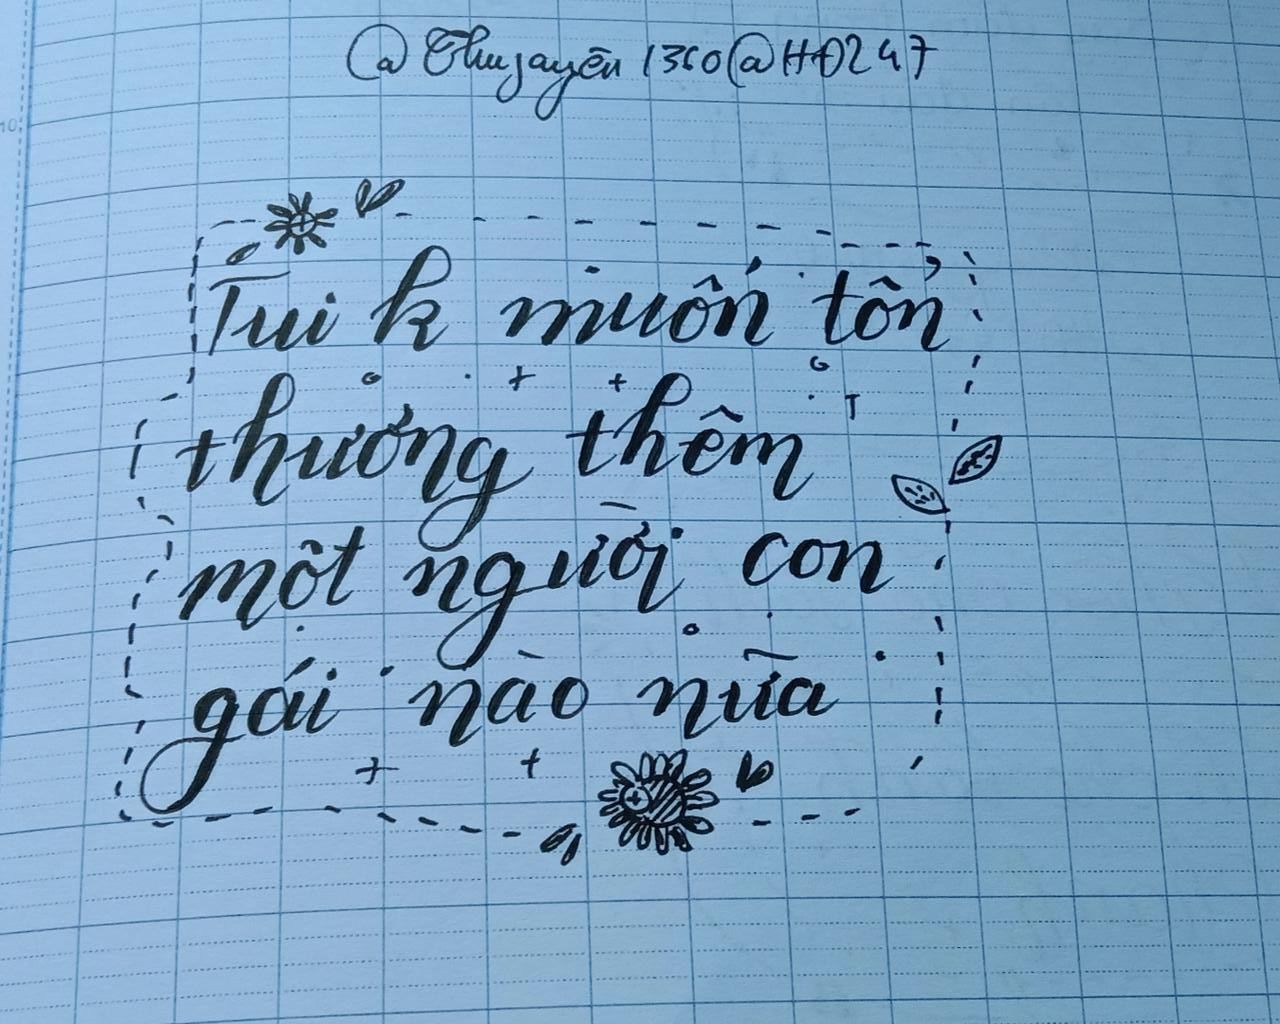 @ Thujayên 1360@HĐ247
Tui k muốn tổn
thương thêm
một người con
gái nào nữa